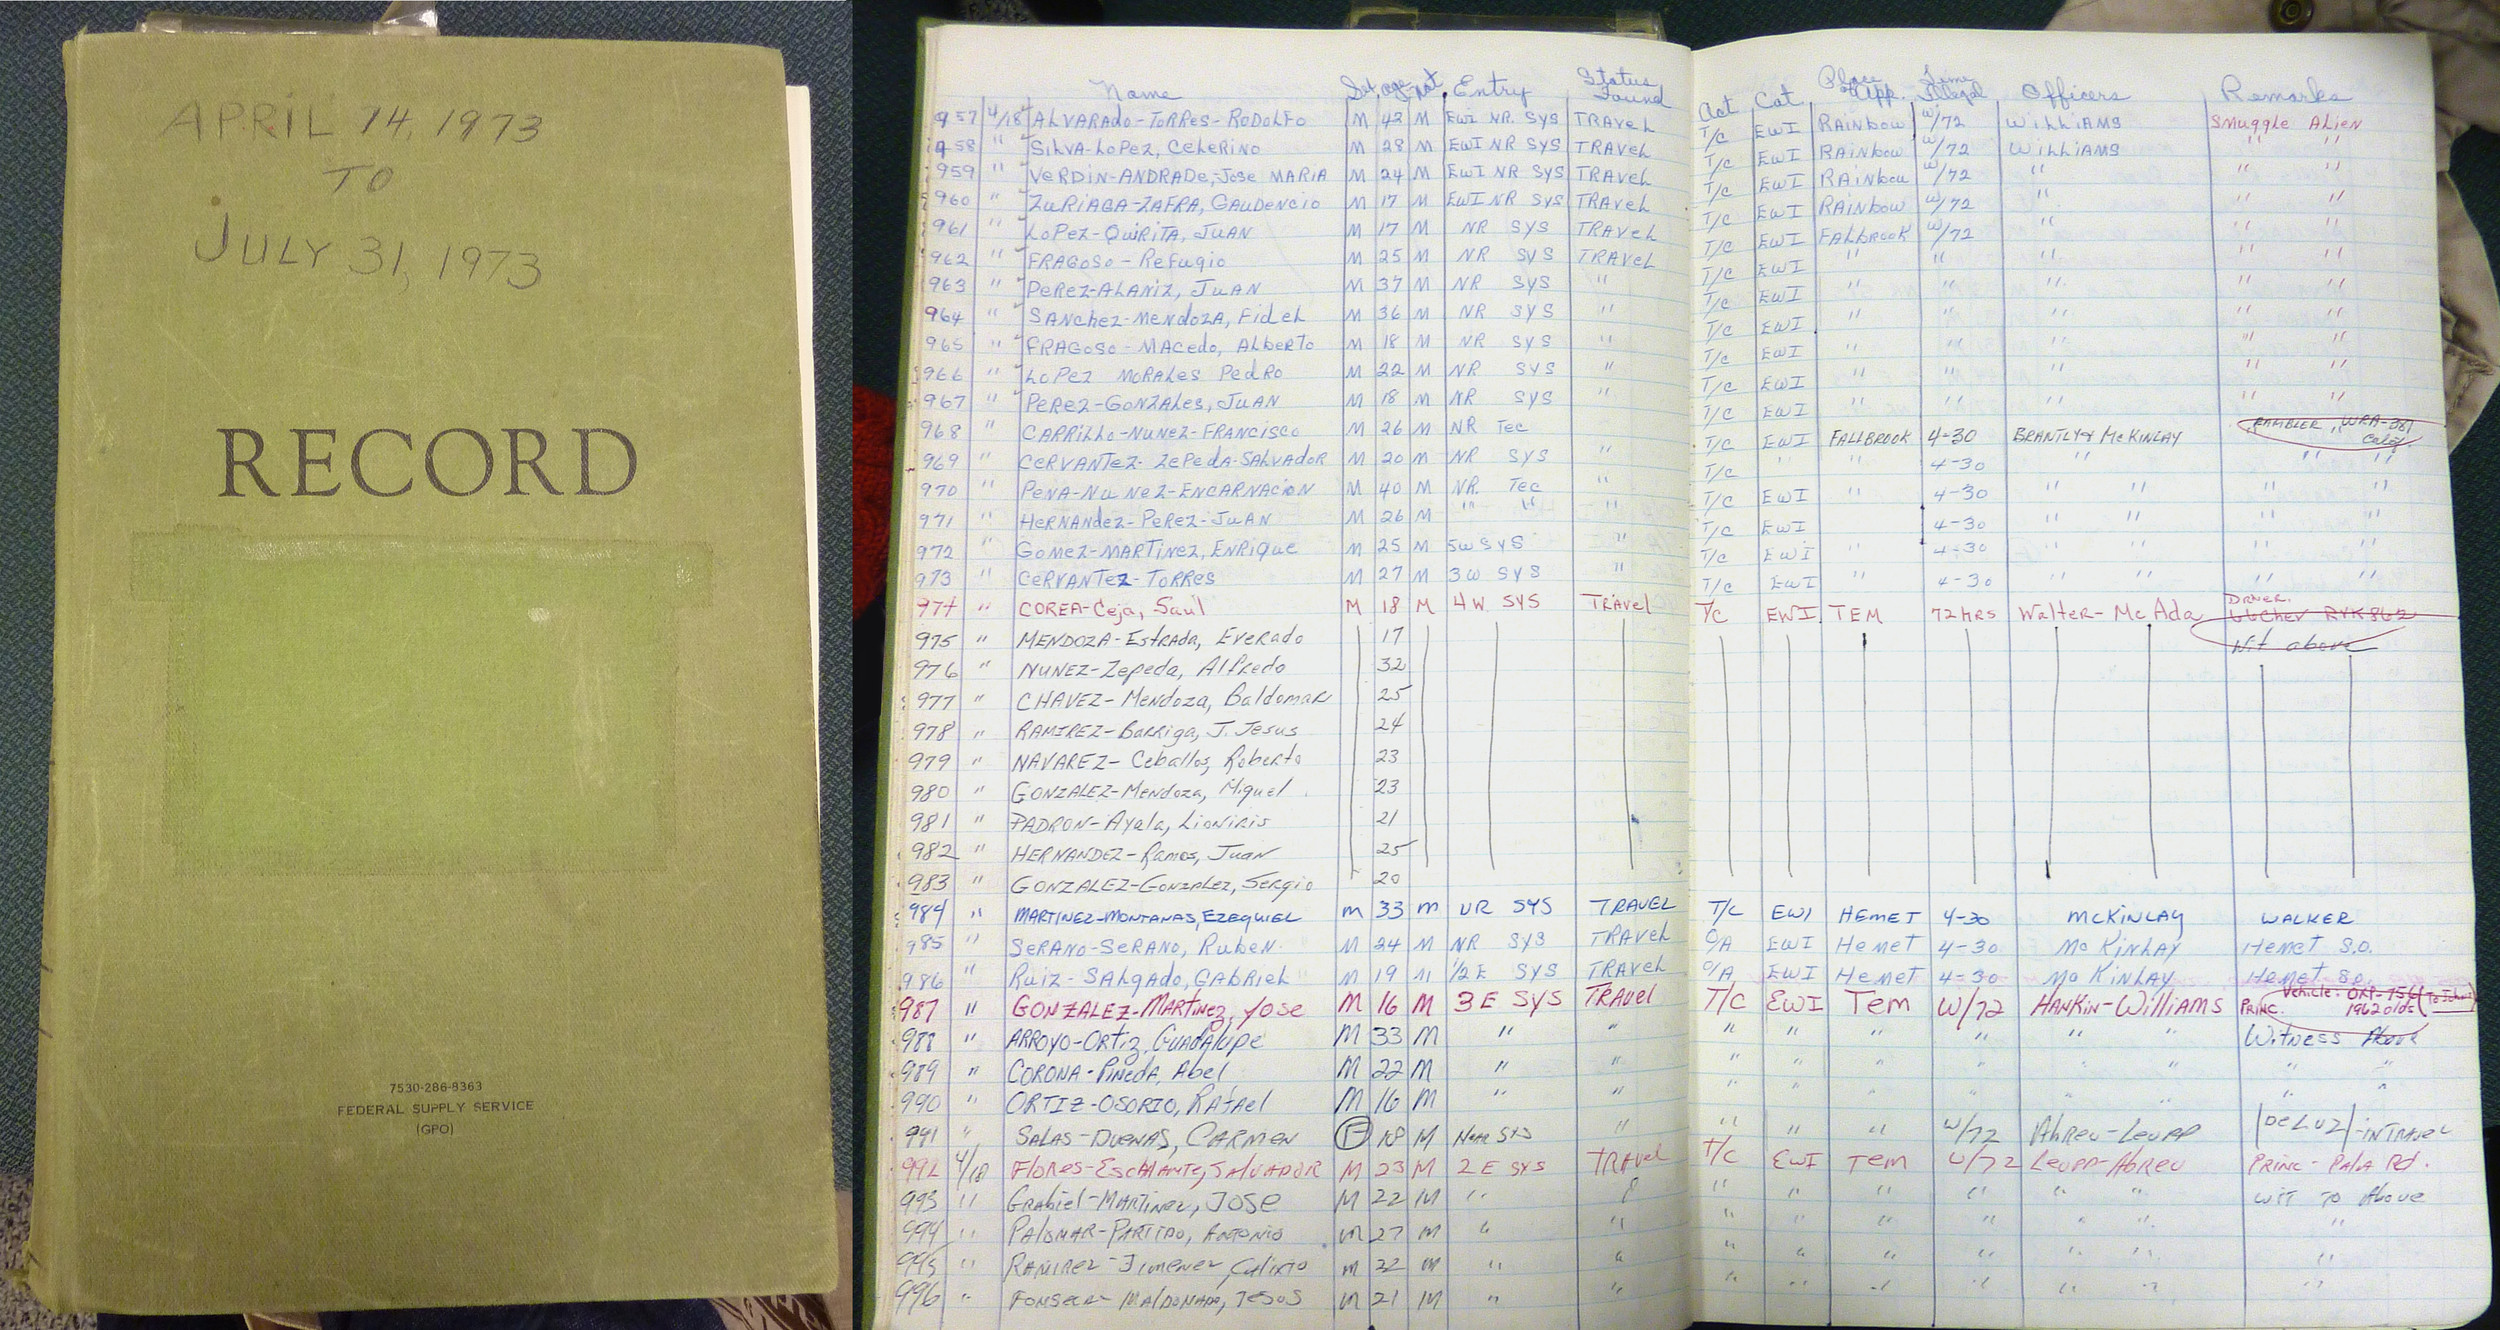 APRIL 14, 1973
TO
JULY 31, 1973
RECORD
7530-286-8363
FEDERAL SUPPLY SERVICE
(GPO)
Name Sex age nat. Entry Status Found Act Cat Place of App. Time Illegal Officers Remarks
957 4/18 ALVARADO-TORRES-RODOLFO M 42 M EWI NR. SYS TRAVEL T/C EWI RAINBOW W/72 WILLIAMS SMUGGLE ALIEN
958 " SILVA-LOPEZ, CELERINO M 28 M EWI NR SYS TRAVEL T/C EWI RAINBOW W/72 WILLIAMS " "
959 " VERDIN-ANDRADE, JOSE MARIA M 24 M EWI NR SYS TRAVEL T/C EWI RAINBOW W/72 " " "
960 " ZURIAGA-ZAFRA, GAUDENCIO M 17 M EWI NR SYS TRAVEL T/C EWI RAINBOW W/72 " " "
961 " LOPEZ-QUIRITA, JUAN M 17 M NR SYS TRAVEL T/C EWI FALBROOK W/72 " " "
962 " FRAGOSO-REFUGIO M 25 M NR SYS TRAVEL T/C EWI " " " " "
963 " PEREZ-ALANIZ, JUAN M 37 M NR SYS " T/C EWI " " " " "
964 " SANCHEZ-MENDOZA, FIDEL M 36 M NR SYS " T/C EWI " " " " "
965 " FRAGOSO-MACEDO, ALBERTO M 18 M NR SYS " T/C EWI " " " " "
966 " LOPEZ MORALES PEDRO M 22 M NR SYS " T/C EWI " " " " "
967 " PEREZ-GONZALES, JUAN M 18 M NR SYS " T/C EWI " " " " "
968 " CARRILLO-NUNEZ-FRANCISCO M 26 M NR TEC T/C EWI FALLBROOK 4-30 BRANTLY & McKINLAY RAMBLER WRA-381 Calif
969 " CERVANTEZ-ZEPEDA-SALVADOR M 20 M NR SYS " T/C " " 4-30 " " "
970 " PENA-NUNEZ-ENCARNACION M 40 M NR. TEC " T/C EWI " 4-30 " " " "
971 " HERNANDEZ-PEREZ-JUAN M 26 M " " " T/C EWI " 4-30 " " " "
972 " GOMEZ-MARTINEZ, ENRIQUE M 25 M 5W SYS " T/C EWI " 4-30 " " " "
973 " CERVANTEZ-TORRES M 27 M 3W SYS " T/C EWI " 4-30 " " " "
974 " COREA-Ceja, Saul M 18 M 4W SYS TRAVEL T/C EWI TEM 72HRS Walter-McAda Driver.
975 " MENDOZA-Estrada, Everado 17 Wit above
976 " NUNEZ-Zepeda, Alfredo 32
977 " CHAVEZ-Mendoza, Baldomar 25
978 " RAMIREZ-Barriga, J. Jesus 24
979 " NAVAREZ-Ceballos, Roberto 23
980 " GONZALEZ-Mendoza, Miquel 23
981 " PADRON-Ayala, Lioniris 21
982 " HERNANDEZ-Ramos, Juan 25
983 " GONZALEZ-Gonzalez, Sergio 20
984 " MARTINEZ-MONTANAS, EZEQUIEL M 33 M UR SYS TRAVEL T/C EWI HEMET 4-30 McKINLAY WALKER
985 " SERANO-SERANO, RUBEN. M 24 M NR SYS TRAVEL O/A EWI Hemet 4-30 McKINLAY Hemet S.O.
986 " Ruiz-SALGADO, GABRIEL M 19 M 1/2 E SYS TRAVEL O/A EWI Hemet 4-30 McKINLAY Hemet S.O.
987 " GONZALEZ-MARTINEZ, JOSE M 16 M 3 E SYS TRAVEL T/C EWI TEM W/72 HANKIN-WILLIAMS PRINC. Vehicle: 1962 olds
988 " ARROYO-ORTIZ, GUADALUPE M 33 M " " " " " " " " WITNESS Above
989 " CORONA-PINEDA, Abel M 22 M " " " " " " " " " "
990 " ORTIZ-OSORIO, RAFAEL M 16 M " " " " " " " " " "
991 " SALAS-DUENAS, CARMEN F 18 M NEAR SYS " " " " W/72 Abreu-Leupp DELUZ-IN TRAVEL
992 4/18 FLORES-ESCALANTE, SALVADOR M 23 M 2 E SYS TRAVEL T/C EWI TEM W/72 LEUPP-ABREU PRINC-PALA Rd.
993 " GRABIEL-MARTINEZ, JOSE M 22 M " " " " " " " " WIT TO Above
994 " PALOMAR-PARTIDO, ANTONIO M 27 M " " " " " " " " "
995 " RAMIREZ-JIMENEZ, CALIXTO M 22 M " " " " " " " " "
996 " FONSECA-MALDONADO, JESUS M 21 M " " " " " " " " "